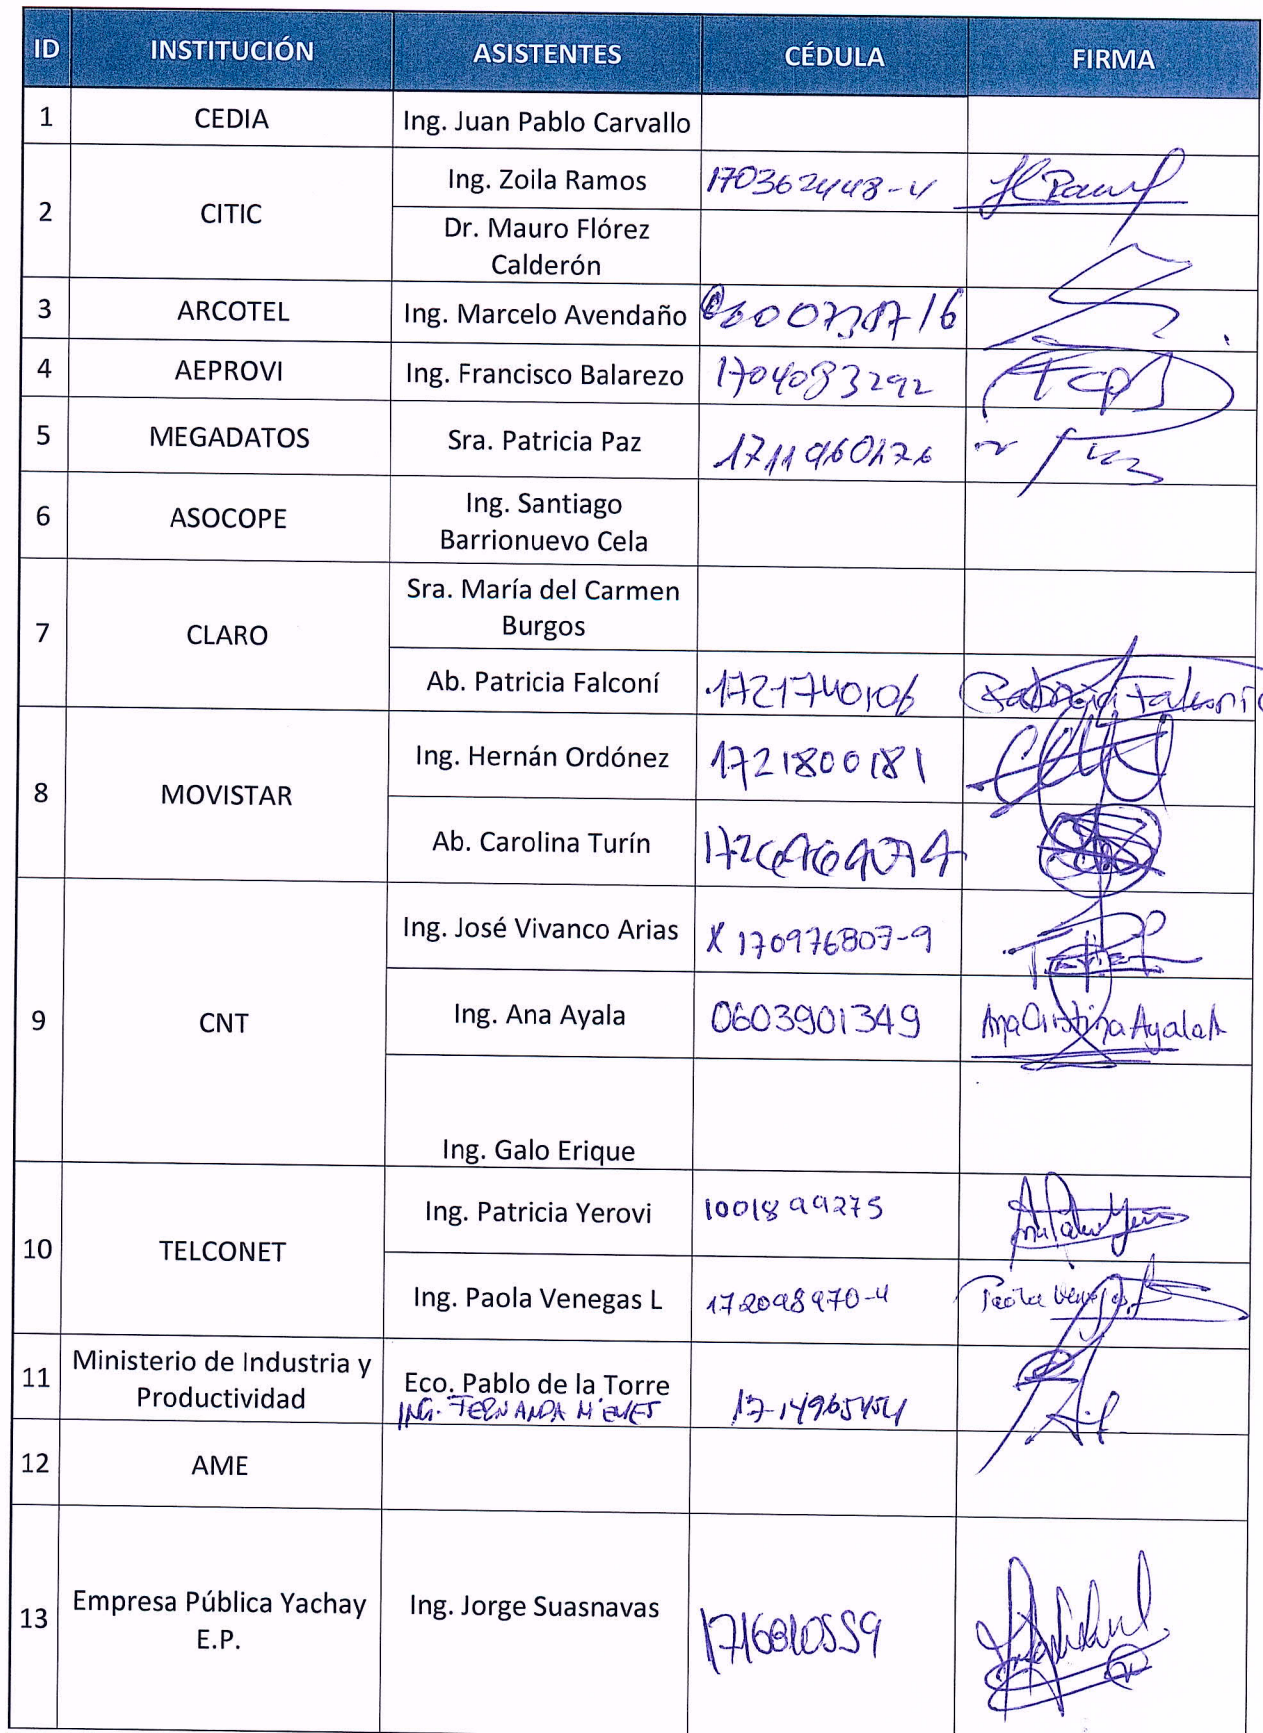 ID INSTITUCIÓN ASISTENTES CÉDULA FIRMA
1 CEDIA Ing. Juan Pablo Carvallo
2 CITIC Ing. Zoila Ramos 170362448-4
Dr. Mauro Flórez
Calderón
3 ARCOTEL Ing. Marcelo Avendaño
4 AEPROVI Ing. Francisco Balarezo 1704083292
5 MEGADATOS Sra. Patricia Paz
6 ASOCOPE Ing. Santiago
Barrionuevo Cela
7 CLARO Sra. María del Carmen
Burgos
Ab. Patricia Falconí 1721740106 Patricia Falconí
8 MOVISTAR Ing. Hernán Ordónez 1721800181
Ab. Carolina Turín
9 CNT Ing. José Vivanco Arias X 170976807-9
Ing. Ana Ayala 0603901349 Ana Cristina Ayala A
Ing. Galo Erique
10 TELCONET Ing. Patricia Yerovi 1001899275
Ing. Paola Venegas L 172098970-4 Paola Venegas
11 Ministerio de Industria y
Productividad Eco. Pablo de la Torre
ING. FERNANDA
12 AME
13 Empresa Pública Yachay
E.P. Ing. Jorge Suasnavas 1716810559